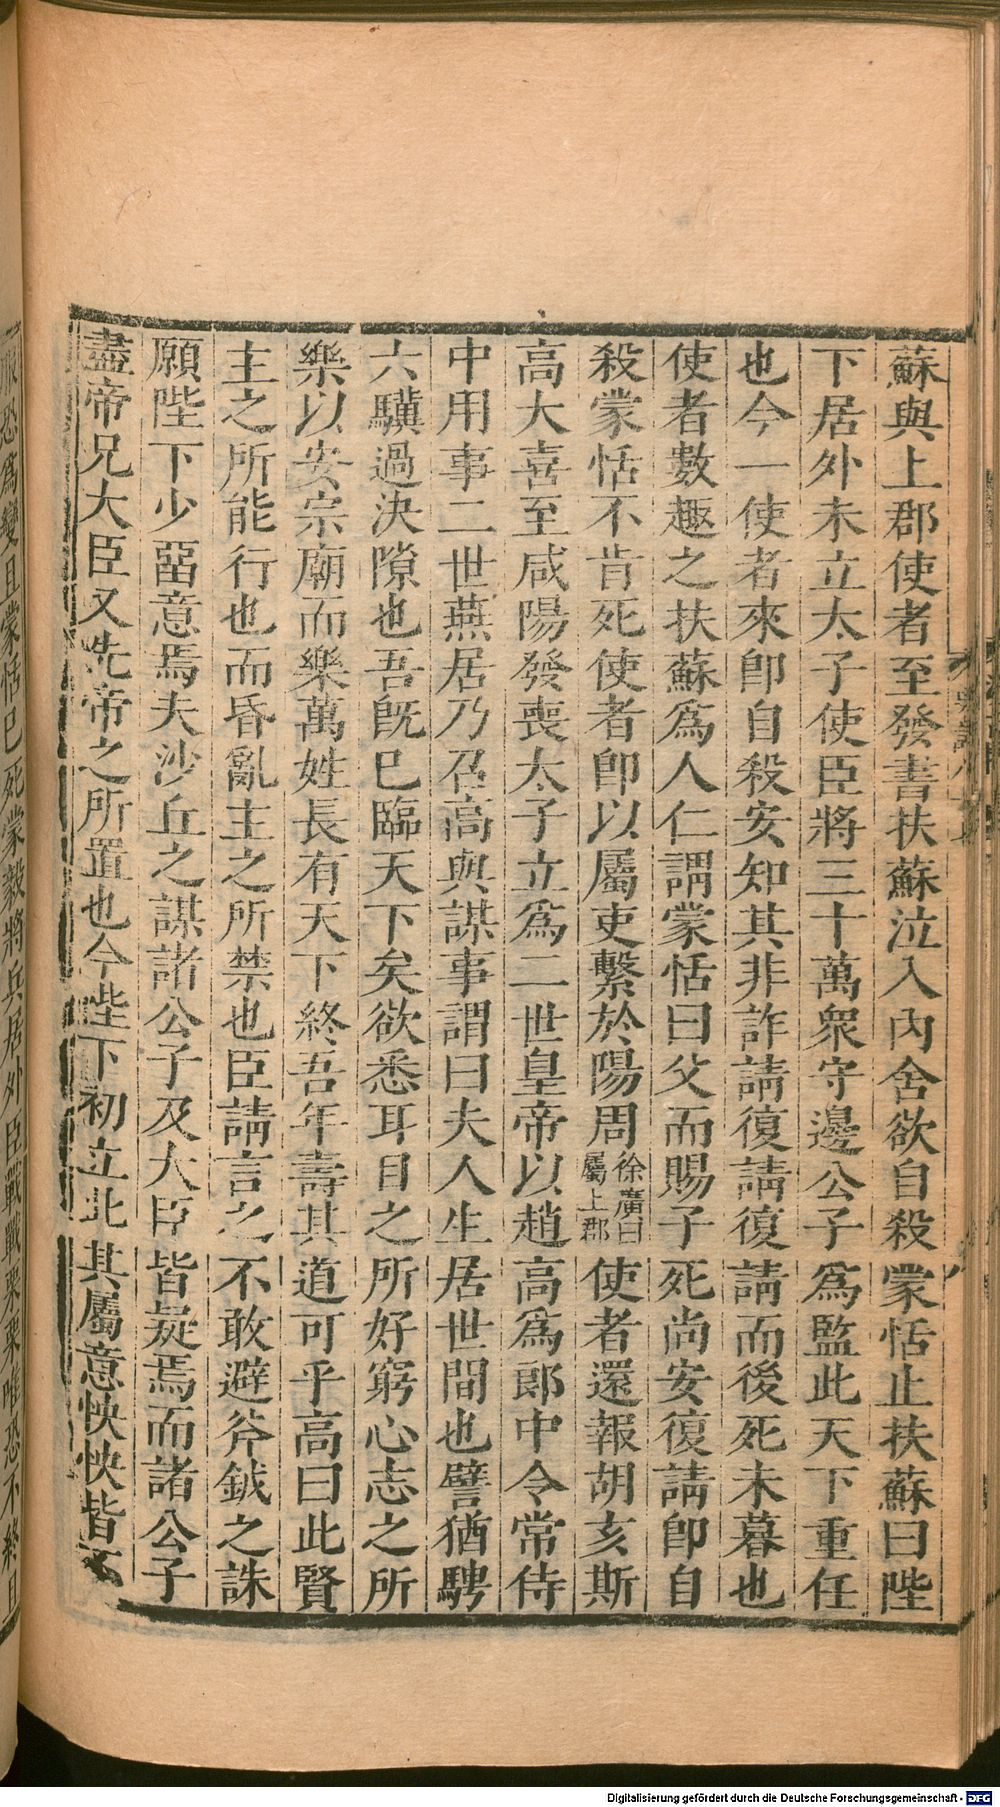 蘇與上郡使者至發書扶蘇泣入內舍欲自殺蒙恬止扶蘇曰陛
下居外未立太子使臣將三十萬衆守邊公子爲監此天下重任
也今一使者來卽自殺安知其非詐請復請復請而後死未暮也
使者數趣之扶蘇爲人仁謂蒙恬曰父而賜子死尚安復請卽自
殺蒙恬不肯死使者卽以屬吏繫於陽周徐廣曰屬上郡使者還報胡亥斯
高大喜至咸陽發喪太子立爲二世皇帝以趙高爲郎中令常侍
中用事二世燕居乃召高與謀事謂曰夫人生居世間也譬猶騁
六驥過決隙也吾旣已臨天下矣欲悉耳目之所好窮心志之所
樂以安宗廟而樂萬姓長有天下終吾年壽其道可乎高曰此賢
主之所能行也而昏亂主之所禁也臣請言之不敢避斧鉞之誅
願陛下少留意焉夫沙丘之謀諸公子及大臣皆疑焉而諸公子
盡帝兄大臣又先帝之所置也今陛下初立此其屬意怏怏皆不
服恐爲變且蒙恬已死蒙毅將兵居外臣戰戰栗栗唯恐不終且
Digitalisierung gefördert durch die Deutsche Forschungsgemeinschaft - DFG